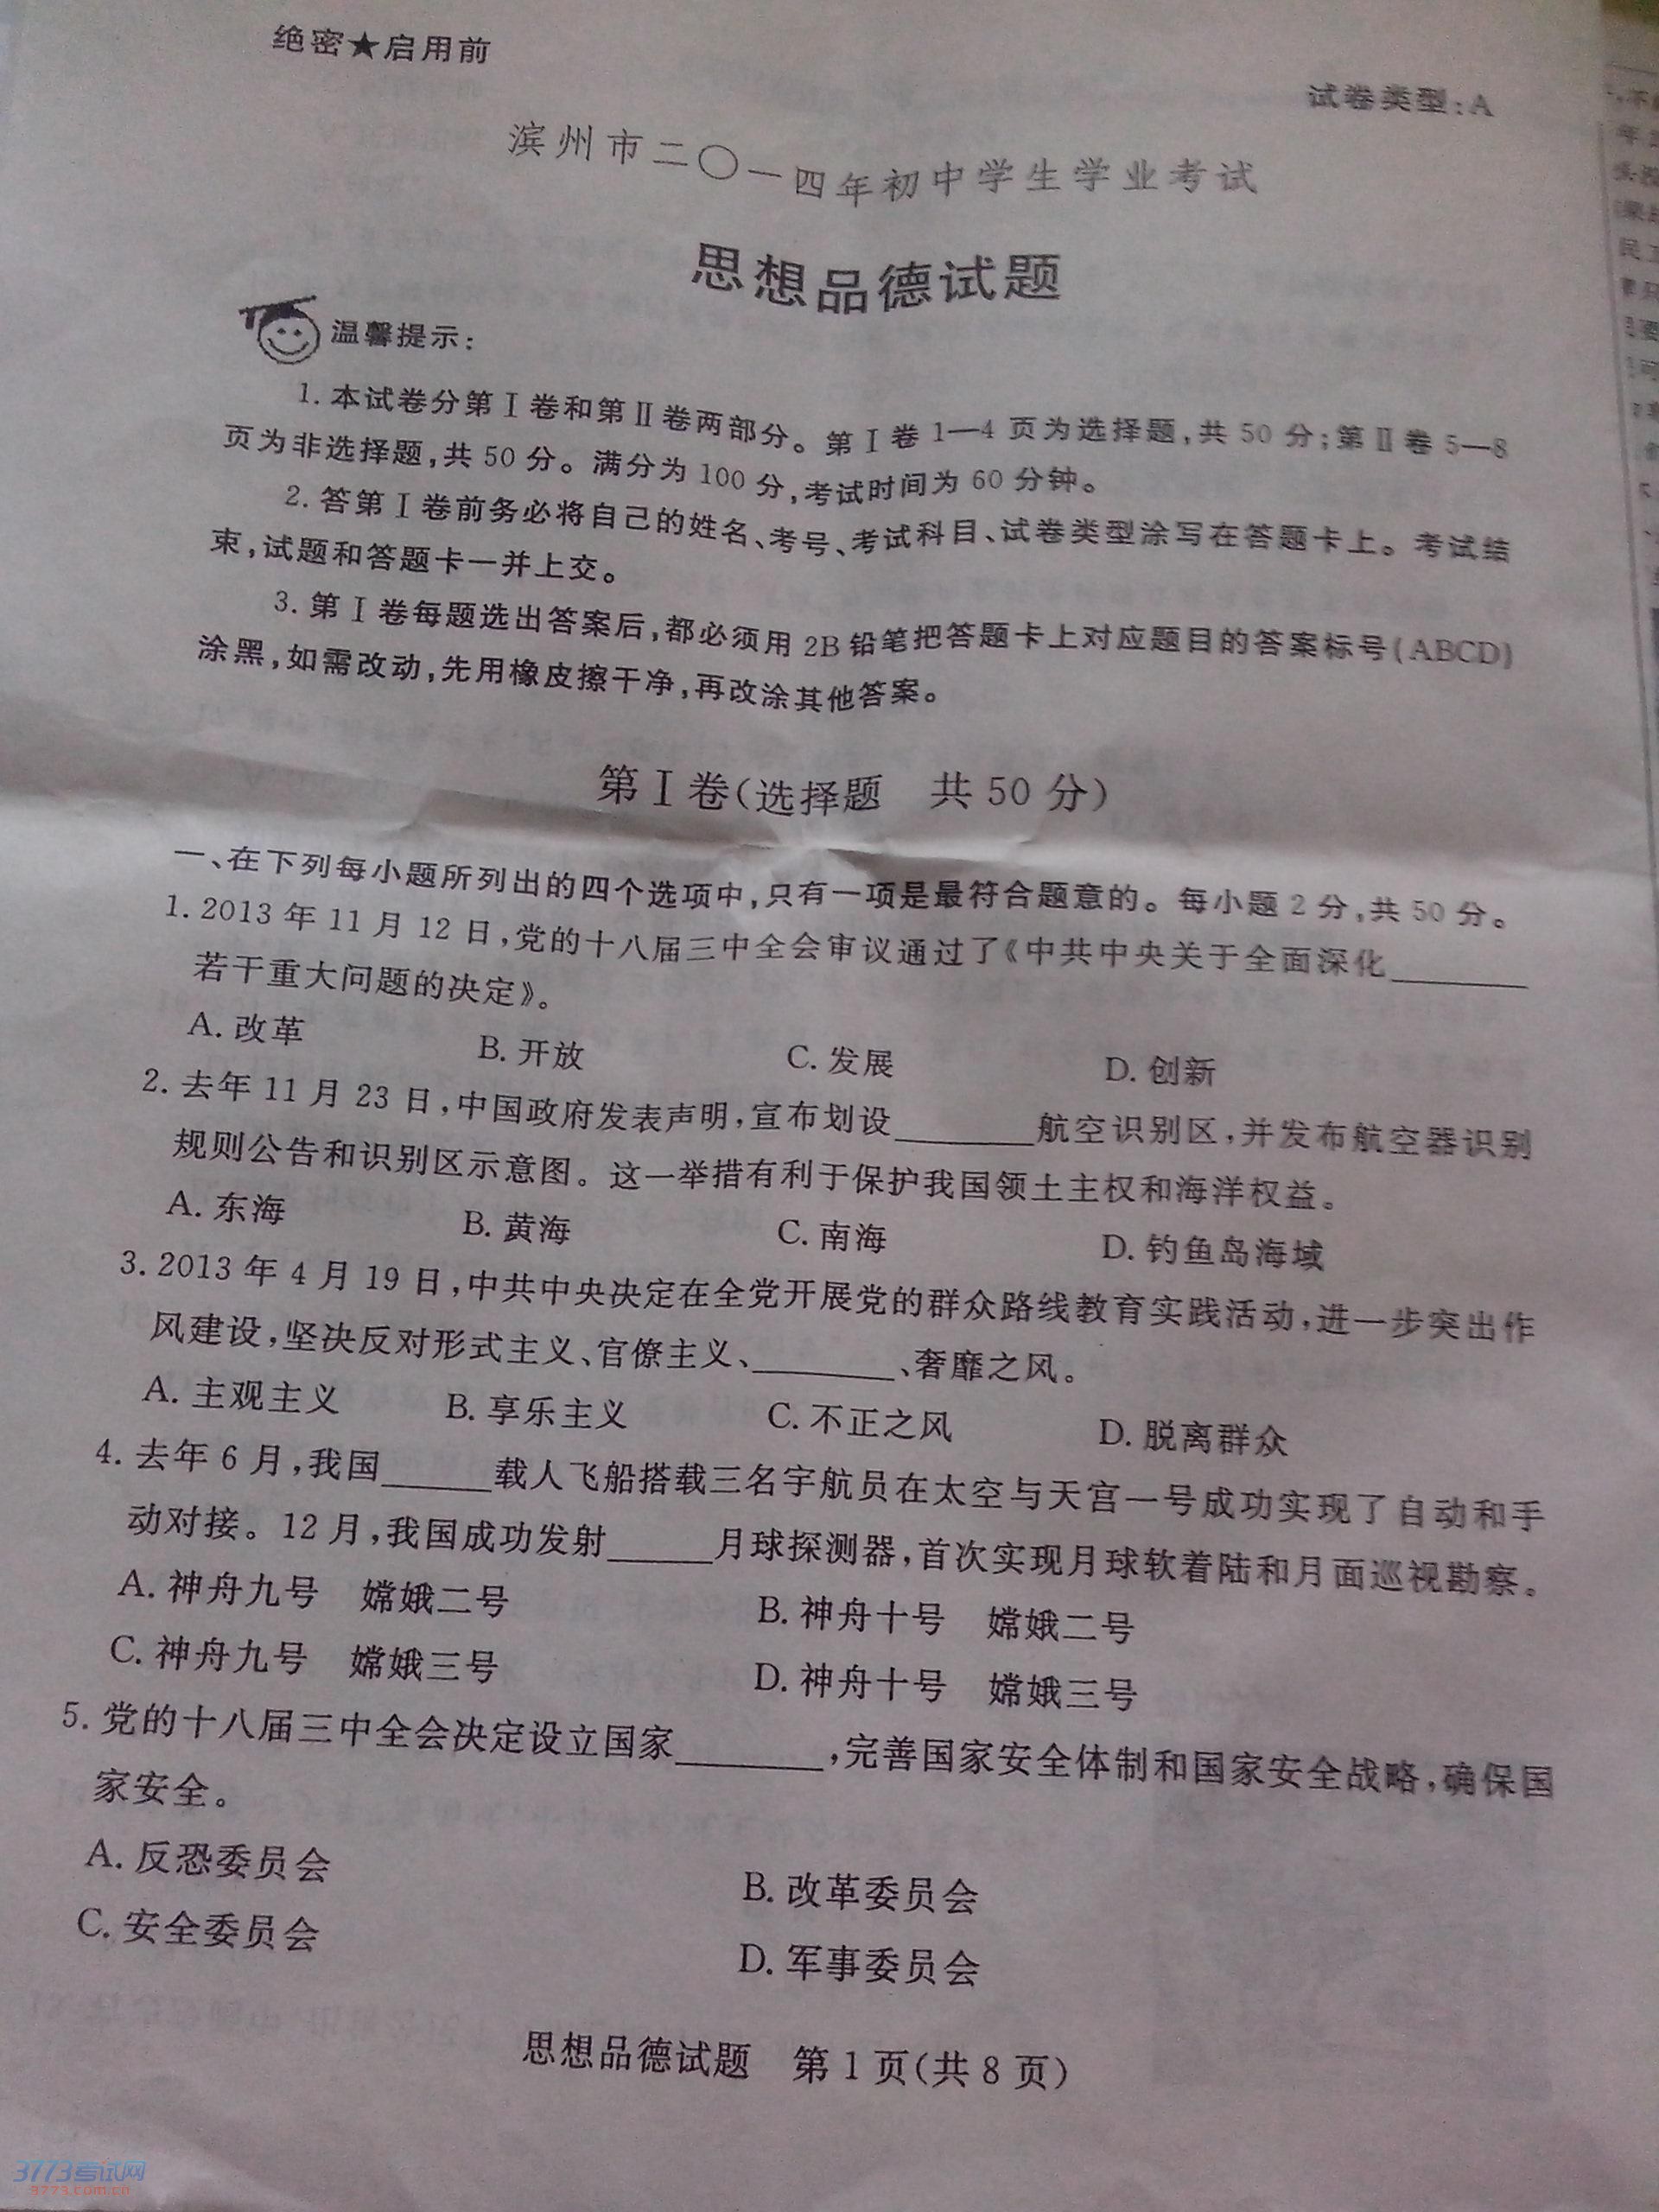 绝密★启用前
试卷类型:A
滨州市二〇一四年初中学生学业考试
思想品德试题
温馨提示:
1. 本试卷分第Ⅰ卷和第Ⅱ卷两部分。第Ⅰ卷 1—4 页为选择题,共 50 分;第Ⅱ卷 5—8
页为非选择题,共 50 分。满分为 100 分,考试时间为 60 分钟。
2. 答第Ⅰ卷前务必将自己的姓名、考号、考试科目、试卷类型涂写在答题卡上。考试结
束,试题和答题卡一并上交。
3. 第Ⅰ卷每题选出答案后,都必须用 2B 铅笔把答题卡上对应题目的答案标号(ABCD)
涂黑,如需改动,先用橡皮擦干净,再改涂其他答案。
第Ⅰ卷(选择题 共 50 分)
一、在下列每小题所列出的四个选项中,只有一项是最符合题意的。每小题 2 分,共 50 分。
1. 2013 年 11 月 12 日,党的十八届三中全会审议通过了《中共中央关于全面深化________
若干重大问题的决定》。
A. 改革 B. 开放 C. 发展 D. 创新
2. 去年 11 月 23 日,中国政府发表声明,宣布划设________航空识别区,并发布航空器识别
规则公告和识别区示意图。这一举措有利于保护我国领土主权和海洋权益。
A. 东海 B. 黄海 C. 南海 D. 钓鱼岛海域
3. 2013 年 4 月 19 日,中共中央决定在全党开展党的群众路线教育实践活动,进一步突出作
风建设,坚决反对形式主义、官僚主义、________、奢靡之风。
A. 主观主义 B. 享乐主义 C. 不正之风 D. 脱离群众
4. 去年 6 月,我国______载人飞船搭载三名宇航员在太空与天宫一号成功实现了自动和手
动对接。12 月,我国成功发射______月球探测器,首次实现月球软着陆和月面巡视勘察。
A. 神舟九号 嫦娥二号 B. 神舟十号 嫦娥二号
C. 神舟九号 嫦娥三号 D. 神舟十号 嫦娥三号
5. 党的十八届三中全会决定设立国家________,完善国家安全体制和国家安全战略,确保国
家安全。
A. 反恐委员会 B. 改革委员会
C. 安全委员会 D. 军事委员会
思想品德试题 第 1 页(共 8 页)
3773考试网
9773.com.cn